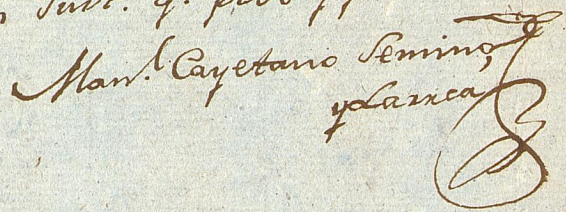 Man.l Cayetano Semino,
y Larrea